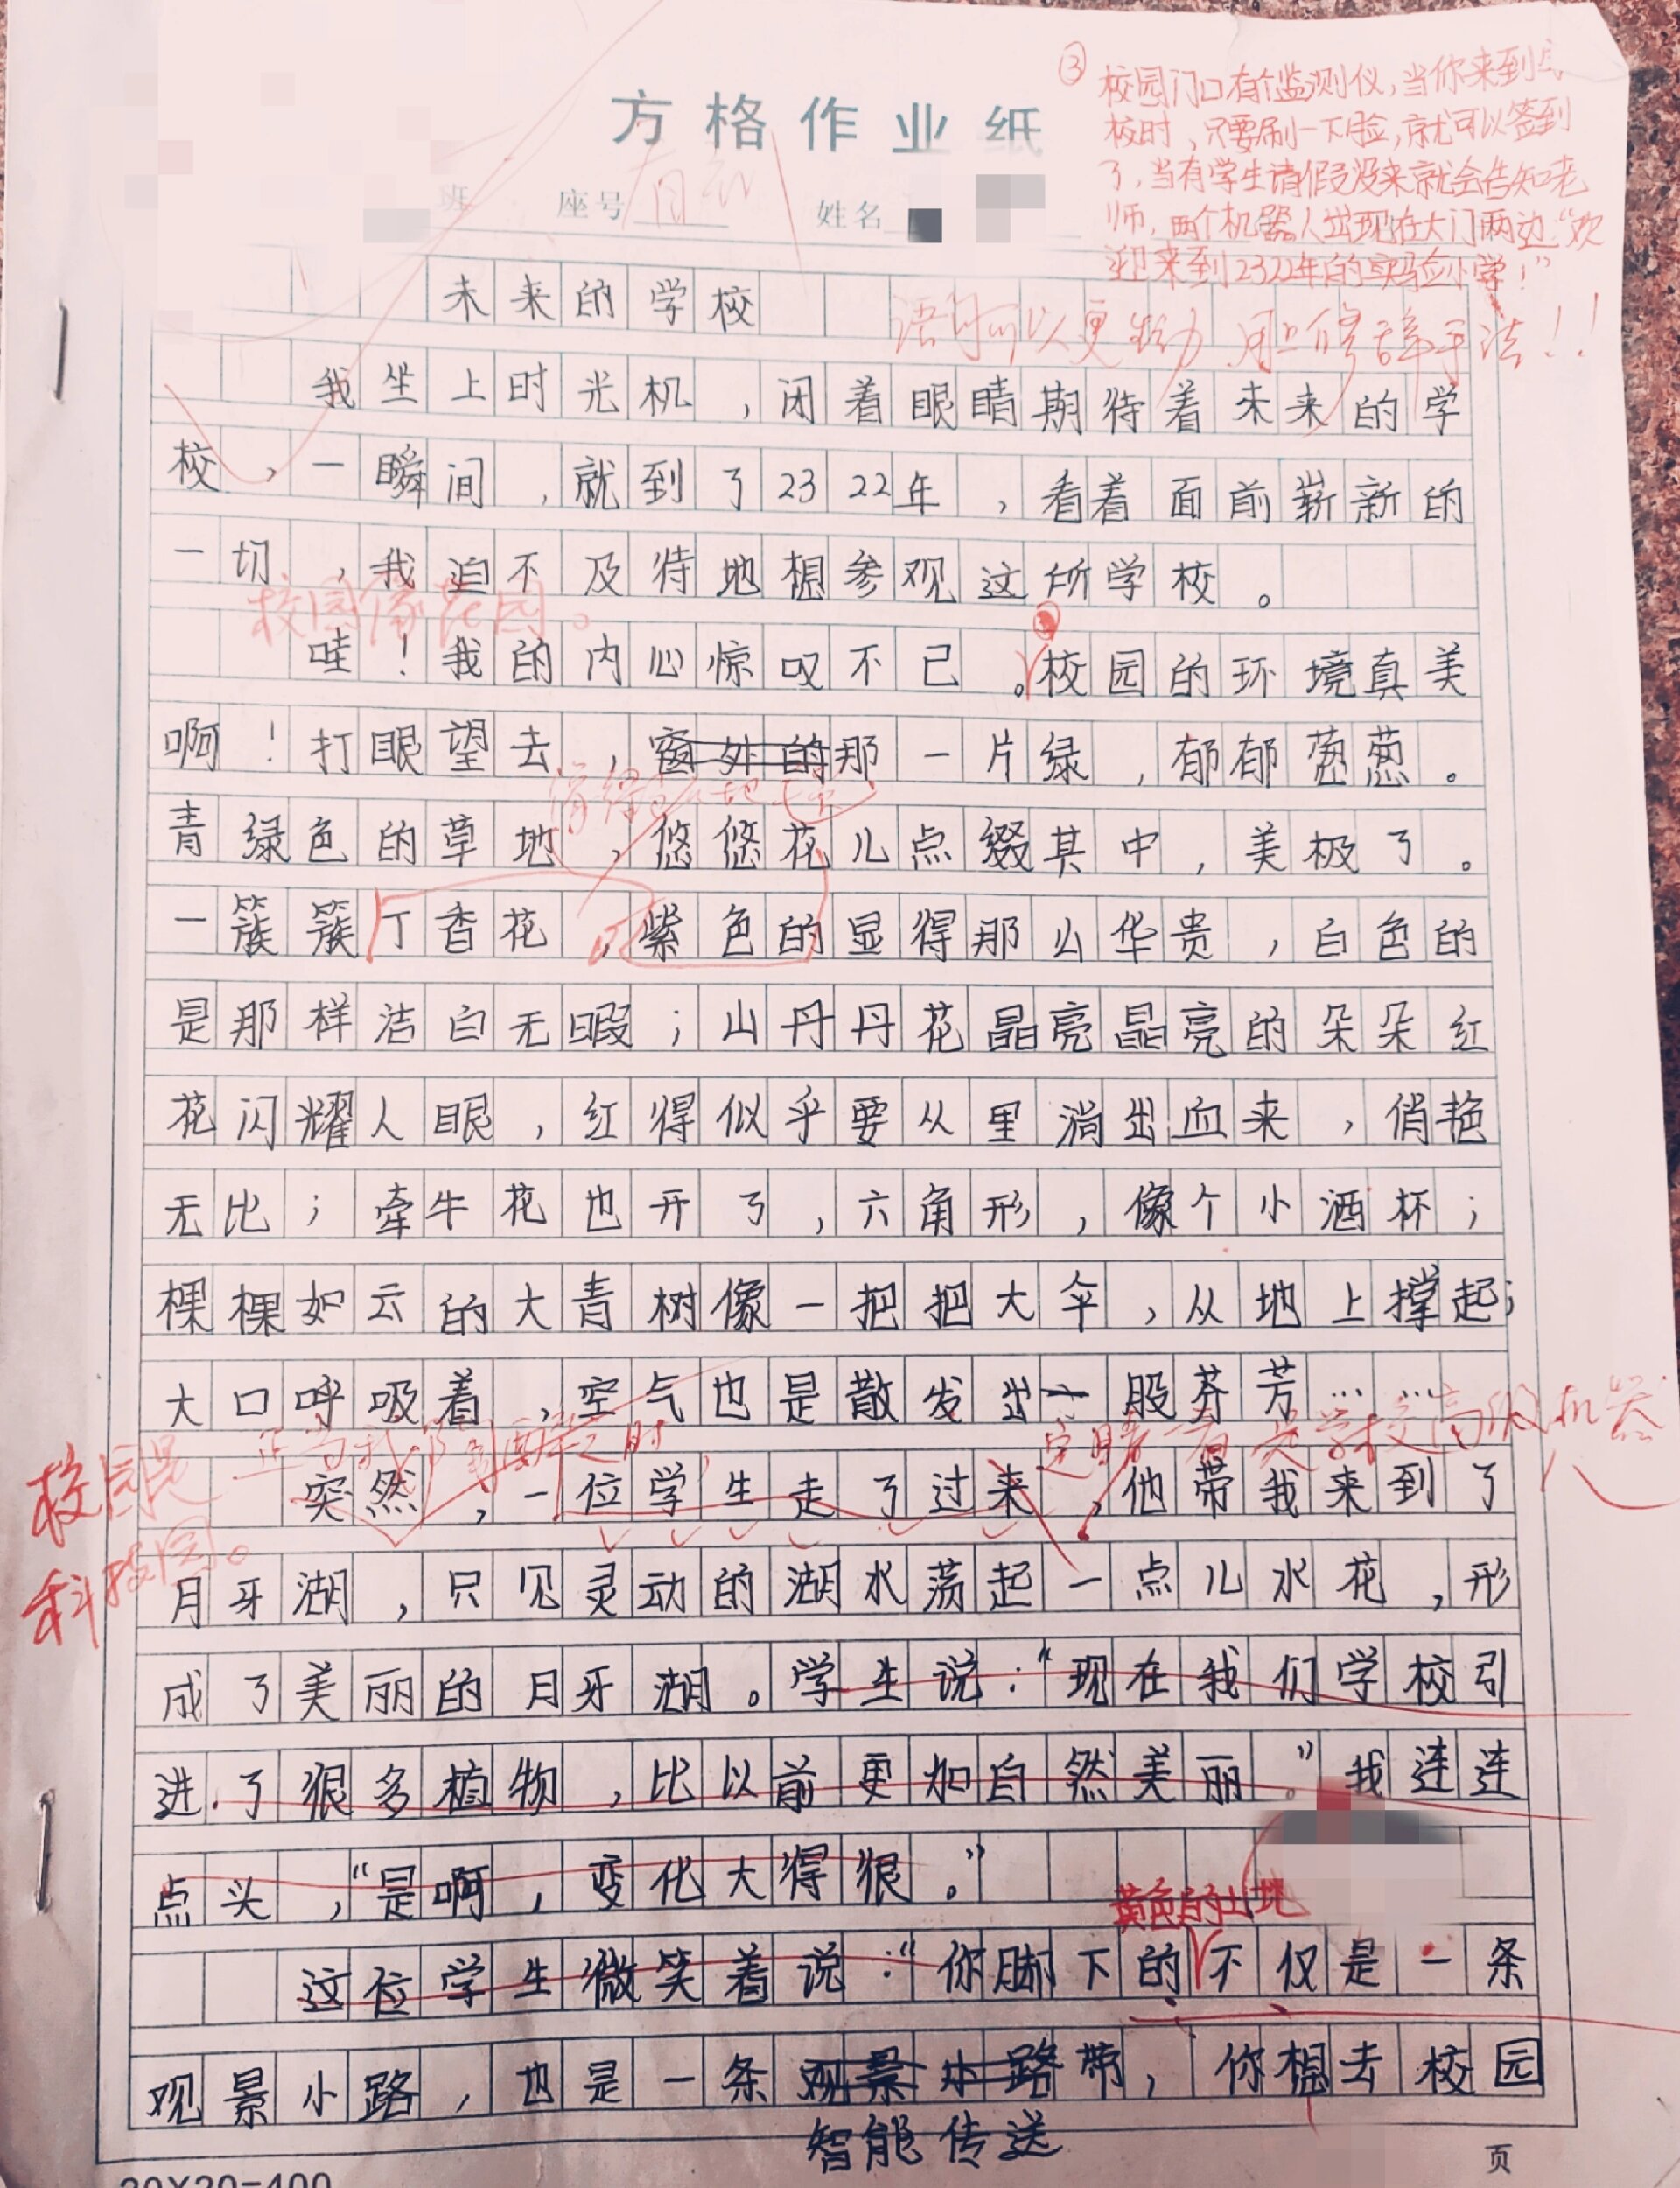 ③校园门口有个监测仪,当你来到
校时,只要刷一下脸,就可以签到
了,当有学生请假没来就会告知老
师,两个机器人出现在大门两边“欢
迎来到2322年的实验小学!”
方格作业纸
班 座号 姓名
未来的学校
语句可以更生动 用上修辞手法!!
我坐上时光机,闭着眼睛期待着未来的学
校,一瞬间,就到了2322年,看着面前崭新的
一切,我迫不及待地想参观这所学校。
校园像花园。
哇!我的内心惊叹不已。校园的环境真美
啊!打眼望去,窗外的那一片绿,郁郁葱葱。
青绿色的草地,悠悠花儿点缀其中,美极了。
一簇簇丁香花,紫色的显得那么华贵,白色的
是那样洁白无暇;山丹丹花晶亮晶亮的朵朵红
花闪耀人眼,红得似乎要从里淌出血来,俏艳
无比;牵牛花也开了,六角形,像个小酒杯;
棵棵如云的大青树像一把把大伞,从地上撑起;
大口呼吸着,空气也是散发出一股芬芳……
正当我陶醉之时,
定睛一看是学校高级机器人
校园是
科技园。
突然,一位学生走了过来,他带我来到了
月牙湖,只见灵动的湖水荡起一点儿水花,形
成了美丽的月牙湖。学生说:“现在我们学校引
进了很多植物,比以前更加自然美丽。”我连连
点头,“是啊,变化大得很。”
黄色的土地
这位学生微笑着说:“你脚下的不仅是一条
观景小路,也是一条观景小路带,你想去校园
智能传送
页
20X20=400